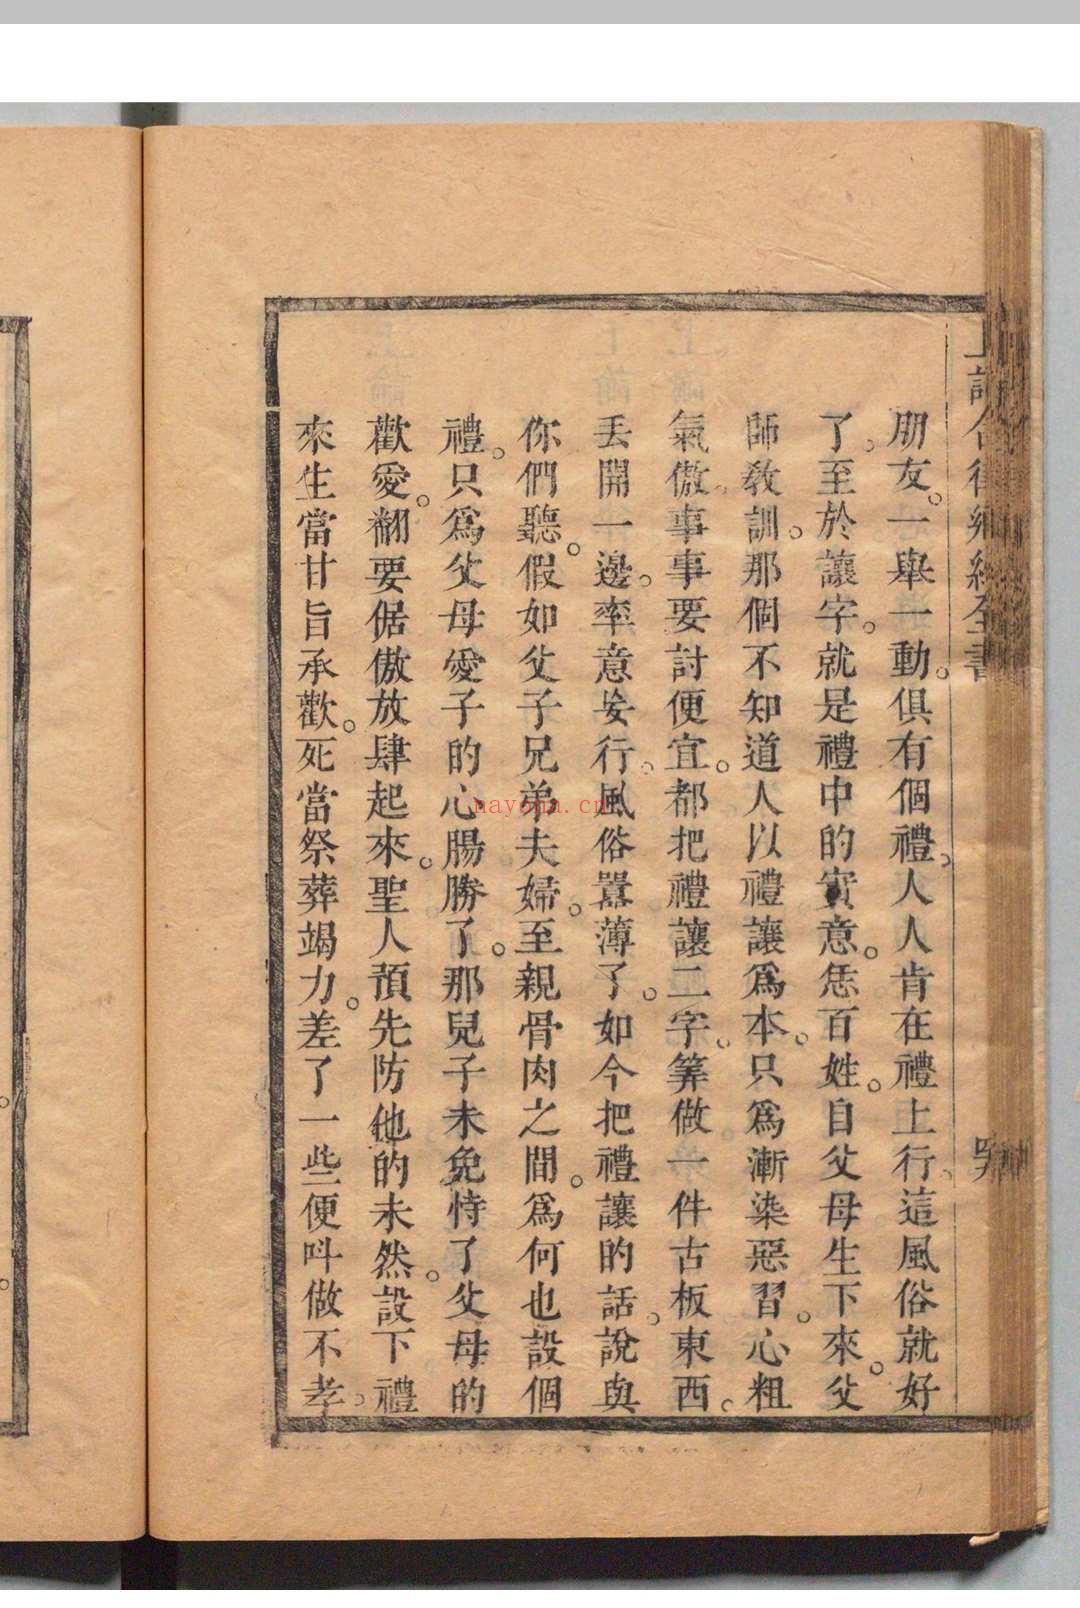 朋友。一舉一動。俱有個禮。人人肯在禮上行。這風俗就好
了。至於讓字。就是禮中的實意。恁百姓。自父母生下來。父
師教訓。那個不知道人以禮讓爲本。只爲漸染惡習。心粗
氣傲。事事要討便宜。都把禮讓二字。筭做一件古板東西。
丟開一邊。率意妄行。風俗囂薄了。如今把禮讓的話。說與
你們聽。假如父子兄弟夫婦。至親骨肉之間。爲何也設個
禮。只爲父母愛子的心腸勝了。那兒子未免恃了父母的
歡愛。翻要倨傲放肆起來。聖人預先防他的未然。設下禮
來。生當甘旨承歡。死當祭葬竭力。差了一些。便呌做不孝。
nayona.cn